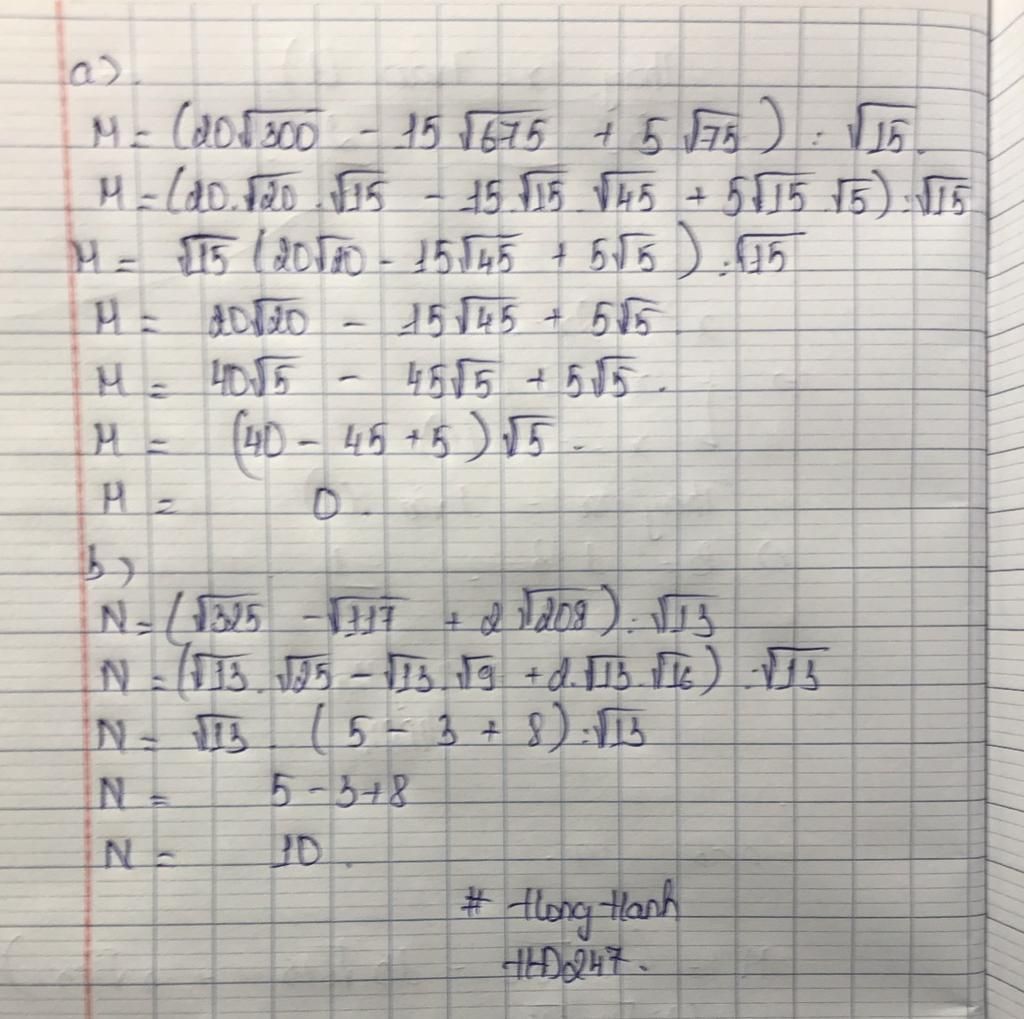 a).
M = (20√300 - 15√675 + 5√75) : √15.
M = (20.√20.√15 - 15.√15.√45 + 5√15.√5) : √15
M = √15 (20√20 - 15√45 + 5√5) : √15
M = 20√20 - 15√45 + 5√5
M = 40√5 - 45√5 + 5√5.
M = (40 - 45 + 5)√5.
M = 0.
b)
N = (√325 - √117 + 2√208) : √13
N = (√13.√25 - √13.√9 + 2.√13.√16) : √13
N = √13. (5 - 3 + 8) : √13
N = 5 - 3 + 8
N = 10.
# Hong Hanh
HD247.